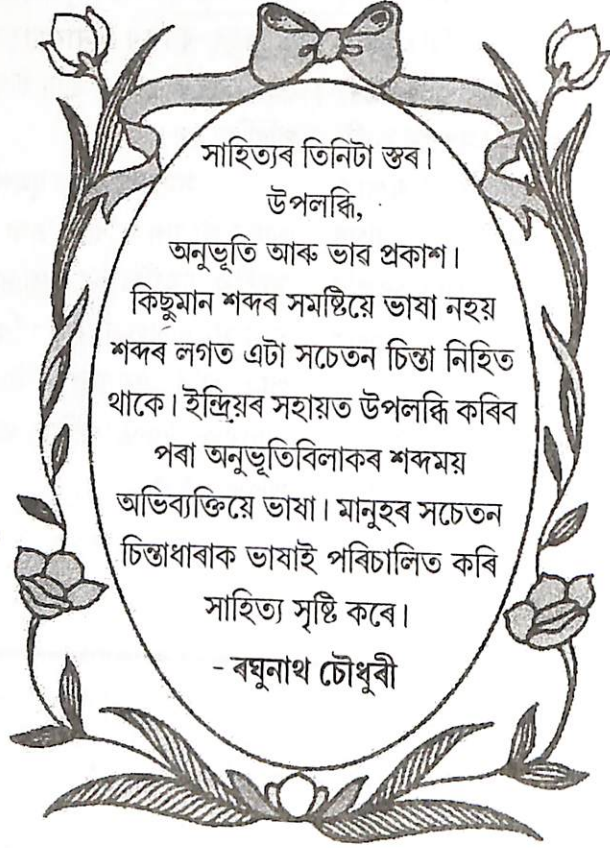 সাহিত্যৰ তিনিটা স্তৰ।
উপলব্ধি,
অনুভূতি আৰু ভাৱ প্ৰকাশ।
কিছুমান শব্দৰ সমষ্টিয়ে ভাষা নহয়
শব্দৰ লগত এটা সচেতন চিন্তা নিহিত
থাকে। ইন্দ্ৰিয়ৰ সহায়ত উপলব্ধি কৰিব
পৰা অনুভূতিবিলাকৰ শব্দময়
অভিব্যক্তিয়ে ভাষা। মানুহৰ সচেতন
চিন্তাধাৰাক ভাষাই পৰিচালিত কৰি
সাহিত্য সৃষ্টি কৰে।
- ৰঘুনাথ চৌধুৰী